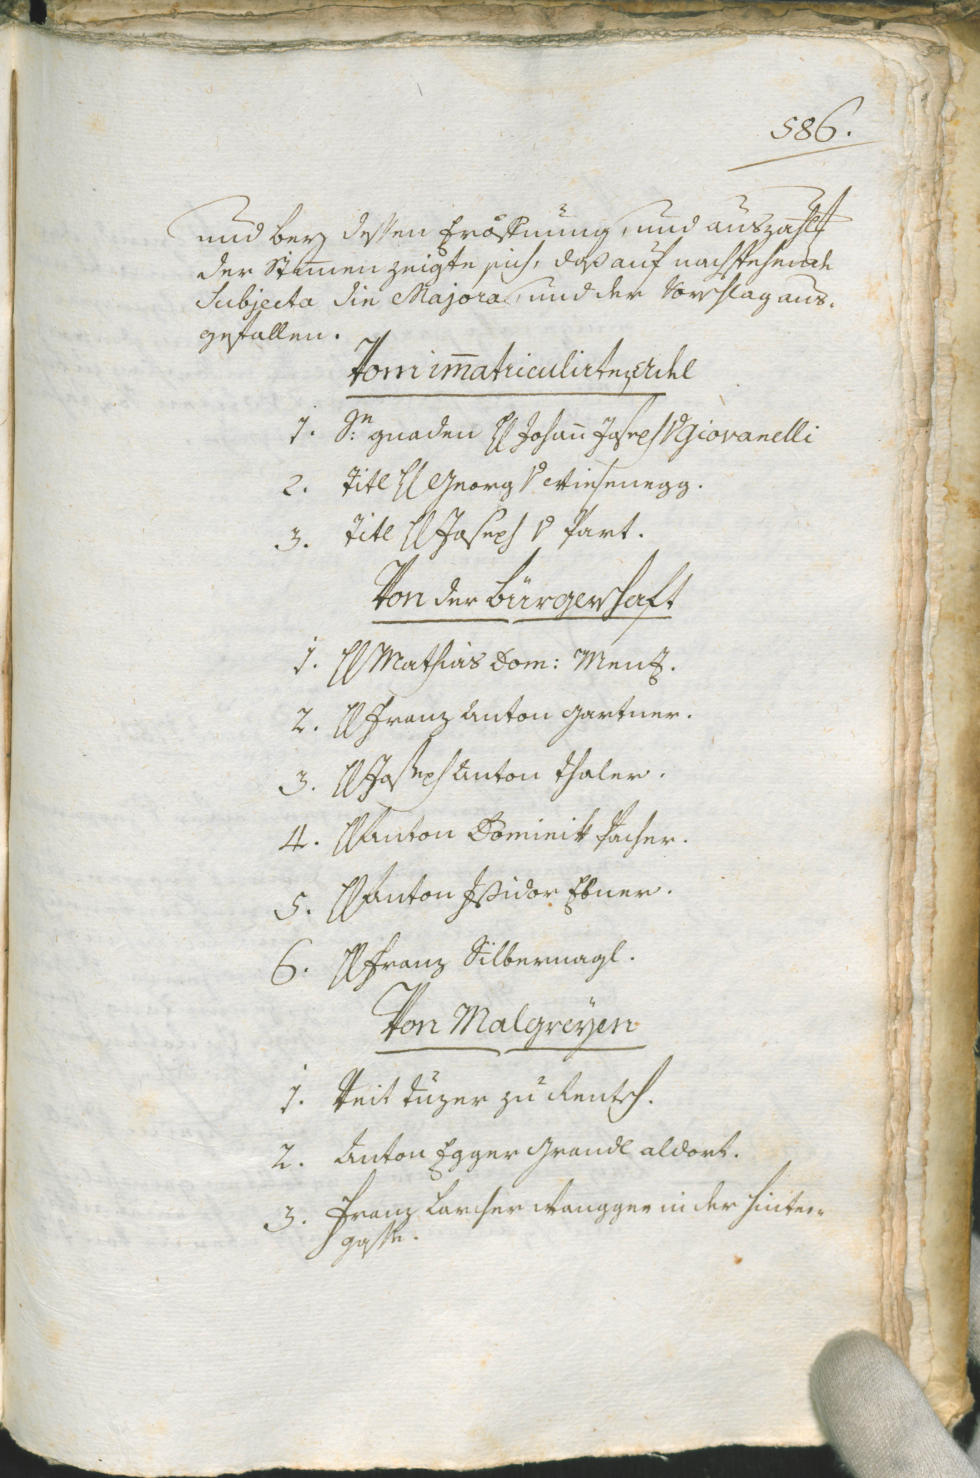 586.
und bey dessen Eröffnung, und auszahlung
der Stimen zeigte sich, das auf nachstehende
Subjecta die Majora, und der Vorschlag aus-
gefallen.
Vom im̄atriculirten Adl
1. Sr: gnaden H Johan̄ Joseph v Giovanelli
2. Titl H Georg v Wiesenegg.
3. Titl H Joseph v Hart.
Von der Bürgerschaft
1. H Mathias Dom: Menz.
2. H Franz Anton Gartner.
3. H Joseph Anton Thaler.
4. H Anton Dominik Pacher.
5. H Anton Isidor Ebner.
6. H Franz Silbernagl.
Von Malgreÿen
1. Veit Tuzer zu Rentsch.
2. Anton Egger Grandl aldort.
3. Franz Larcher Wangger in der Hinter-
gasse.